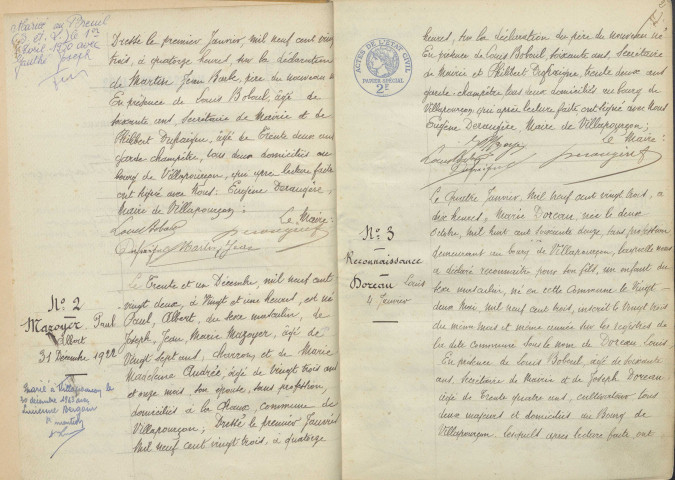 Marié au Breuil
avril 1950 avec
Joseph
Dressé le premier Janvier, mil neuf cent vingt
trois, à quatorze heures, sur la déclaration
de Martin Jean Bark, père du nouveau né
En présence de Louis Boboul, âgé de
soixante ans, Secrétaire de Mairie et de
Philibert Dupaigne, âgé de Trente deux ans
garde champêtre, tous deux domiciliés au
bourg de Villapourçon, qui après lecture faite
ont signé avec Nous: Eugène Derangère,
Maire de Villapourçon;
Le Maire:
Martin Jean
N° 2
Mazoyer Paul
Albert
31 Décembre 1922
Marié à Villapourçon le
30 décembre 1953 avec
Lucienne
Le Trente et un Décembre, mil neuf cent
vingt deux, à Vingt et une heures, est né
Paul, Albert, du sexe masculin, de
Joseph, Jean Marie Mazoyer, âgé de
Vingt sept ans, et de Marie
Madeleine Andrée, âgée de vingt trois ans
et onze mois son épouse, sans profession,
domiciliés à la Chaux, commune de
Villapourçon; Dressé le premier Janvier
Mil neuf cent vingt trois, à quatorze
heures, sur la déclaration du père du nouveau né
En présence de Louis Boboul, soixante ans, Secrétaire
de Mairie et Philibert Dupaigne, trente deux ans
garde-champêtre tous deux domiciliés au bourg de
Villapourçon, qui après lecture faite ont signé avec Nous
Eugène Derangère, Maire de Villapourçon;
Le Maire:
ACTES DE L'ÉTAT CIVIL
PAPIER SPÉCIAL
2E
N° 3
Reconnaissance
Doreau Louis
4 Janvier
Le Quatre Janvier, Mil neuf cent vingt trois, à
dix heures, Marie Doreau, née le deux
Octobre, mil huit cent soixante douze, sans profession
demeurant au bourg de Villapourçon, laquelle nous
a déclaré reconnaître pour son fils, un enfant du
sexe masculin, né en cette Commune le Vingt-
deux mil neuf cent trois, inscrit le vingt trois
du même mois et même année sur les registres de
la dite commune sous le nom de Doreau Louis
En présence de Louis Boboul, âgé de soixante
ans, Secrétaire de Mairie et de Joseph Doreau
âgé de Trente quatre ans, cultivateur tous
deux majeurs et domiciliés au Bourg de
Villapourçon, lesquels après lecture faite, ont